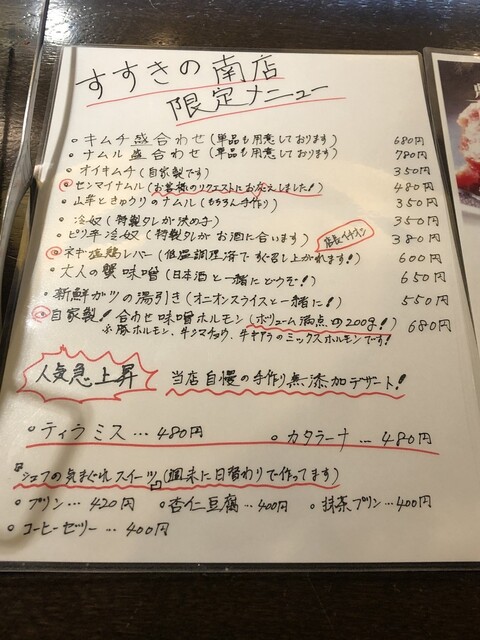 すすきの南店
限定メニュー
・キムチ盛合わせ(単品も用意しております) 680円
・ナムル盛合わせ(単品も用意しております) 780円
・オイキムチ(自家製です) 350円
・センマイナムル(お客様のリクエストにお応えしました!) 480円
・山芋ときゅうりのナムル(もちろん手作り) 350円
・冷奴(特製タレが決め手) 350円
・ピリ辛冷奴(特製タレがお酒に合います) 380円
店長イチオシ
・ネギ塩鶏レバー(低温調理済ですぐ召し上がれます!) 600円
・大人の蟹味噌(日本酒と一緒にどうぞ!) 650円
・新鮮ガツの湯引き(オニオンスライスと一緒に!) 550円
・自家製!合わせ味噌ホルモン(ボリューム満点の200g!) 680円
※豚ホルモン、牛シマチョウ、牛ギアラのミックスホルモンです!
人気急上昇
当店自慢の手作り無添加デザート!
・ティラミス…480円 ・カタラーナ…480円
『シェフの気まぐれスイーツ』(週末に日替わりで作ってます)
・プリン…420円 ・杏仁豆腐…400円 ・抹茶プリン…400円
・コーヒーゼリー…400円